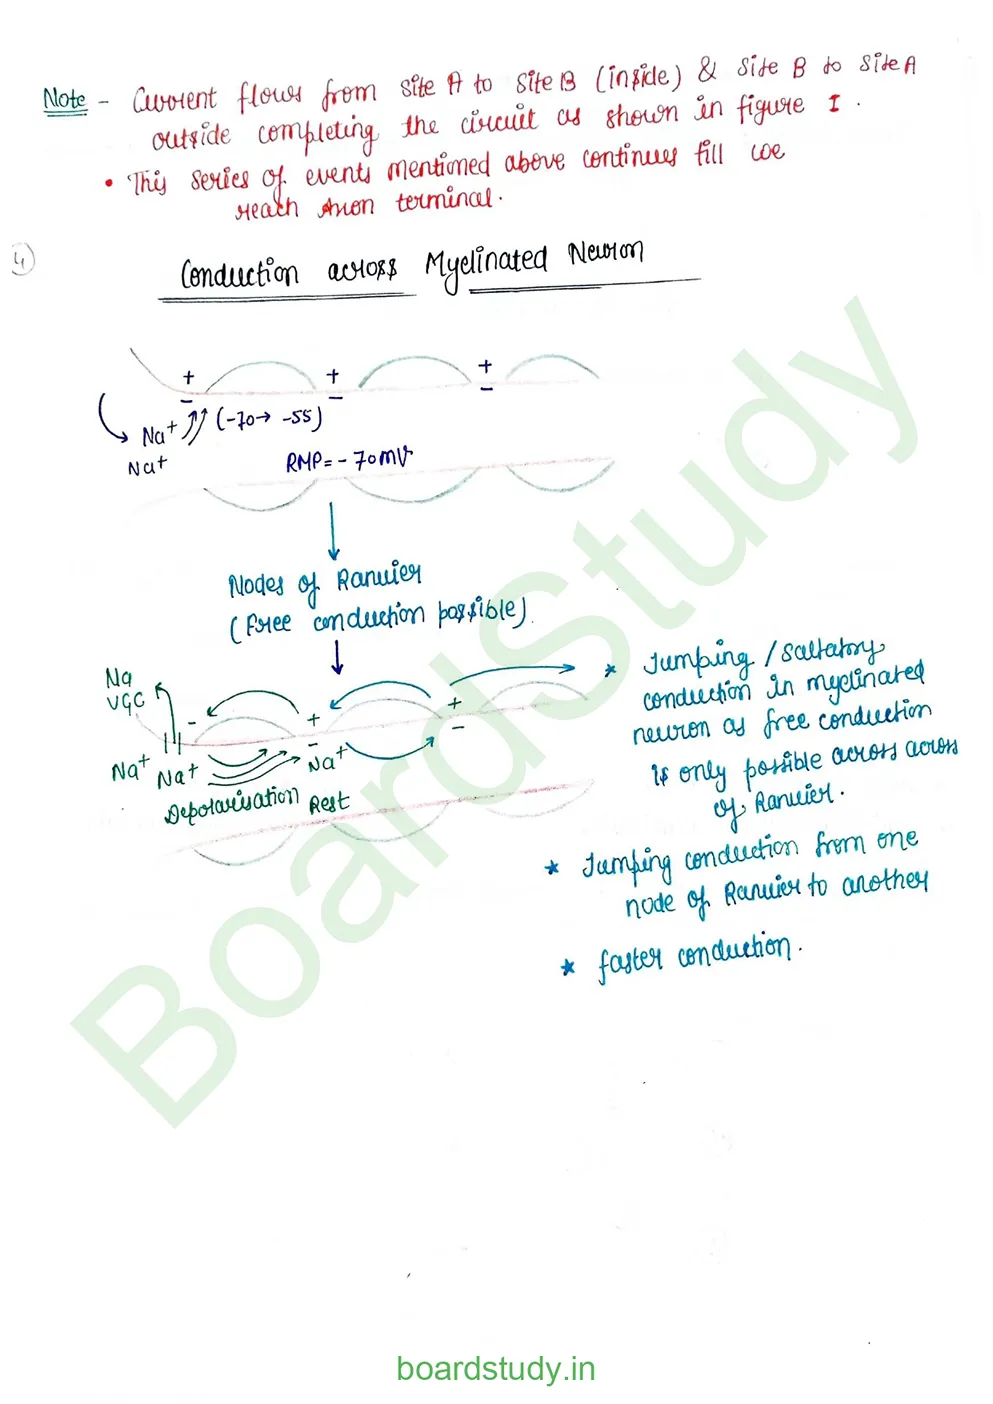 Note - Current flows from Site A to Site B (inside) & Site B to Site A
outside completing the circuit as shown in figure I.
• This series of events mentioned above continues till we
reach Axon terminal.
4
Conduction across Myelinated Neuron
+ + +
- - -
Na+ (-70→ -55)
Na+
RMP = - 70mV
Nodes of Ranvier
(Free conduction possible).
Na
VGC
- + +
- -
Na+ Na+ Na+
Depolarisation Rest
* Jumping / Saltatory
conduction in myelinated
neuron as free conduction
is only possible across across
of Ranvier.
* Jumping conduction from one
node of Ranvier to another
* faster conduction.
BoardStudy
boardstudy.in